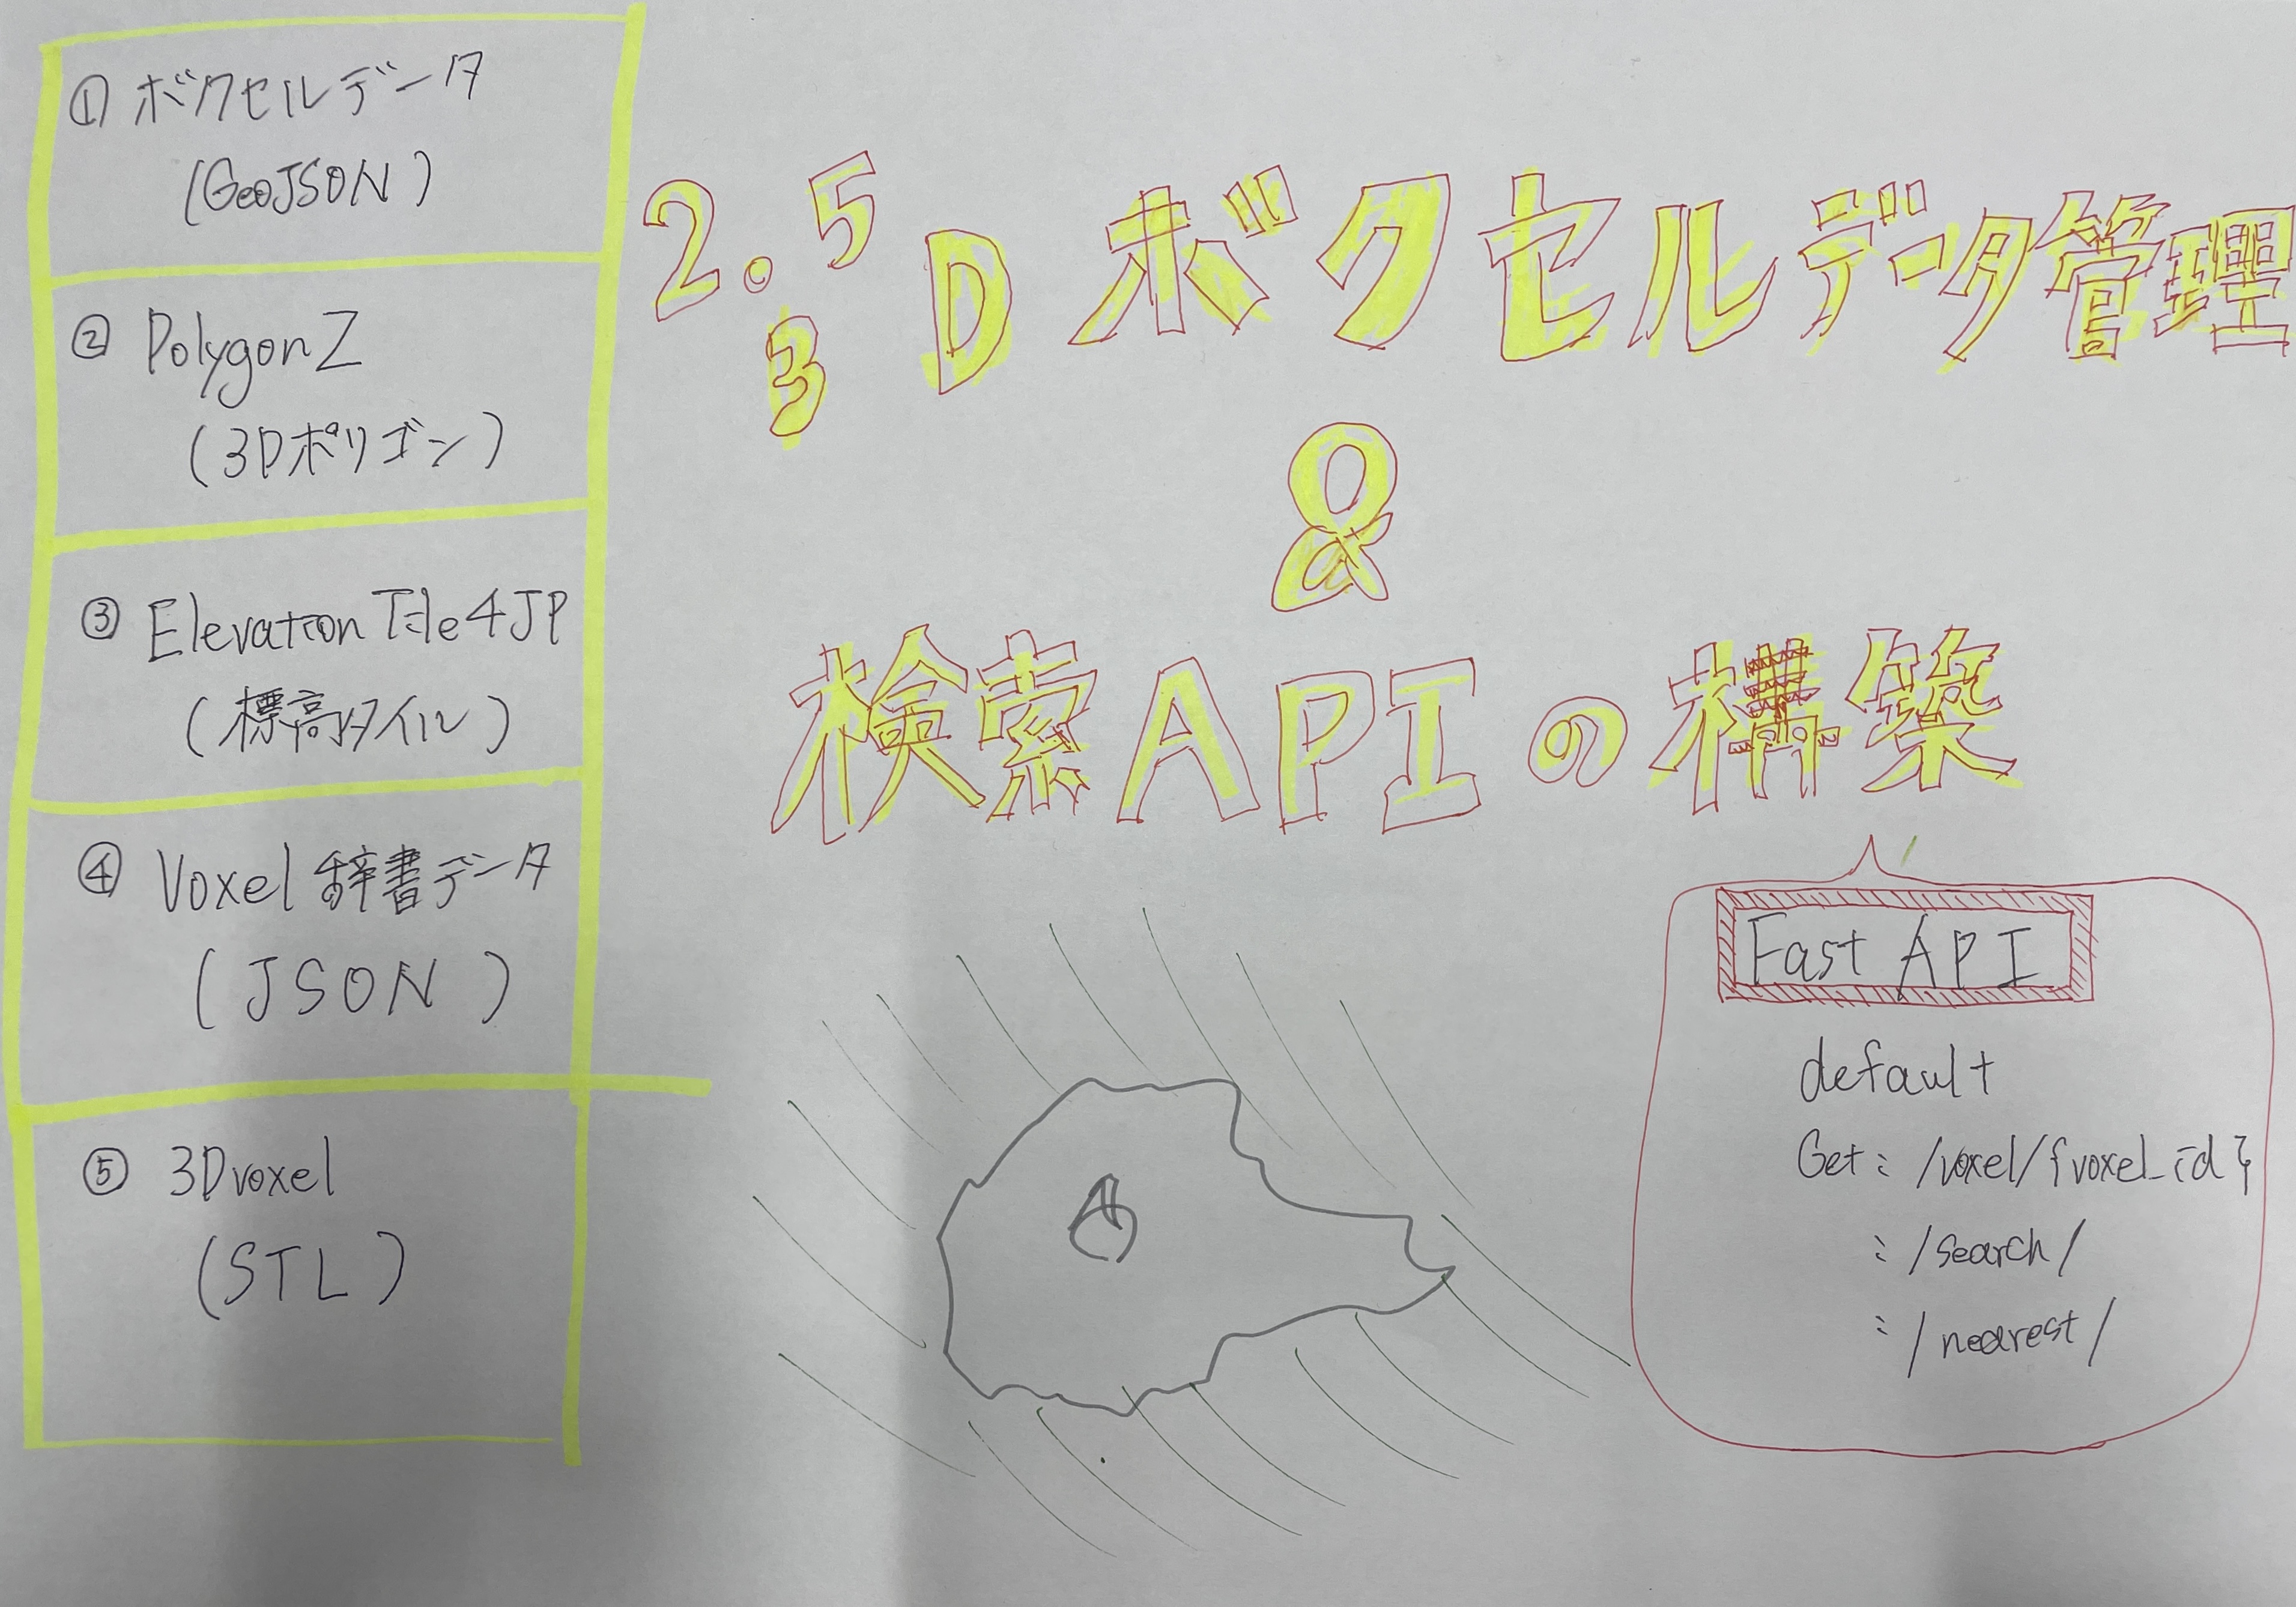 ① ボクセルデータ
(GeoJSON)
② PolygonZ
(3Dポリゴン)
③ ElevationTile4JP
(標高タイル)
④ Voxel辞書データ
(JSON)
⑤ 3Dvoxel
(STL)
2.5Dボクセルデータ管理
3
&
検索APIの構築
Fast API
default
Get: /voxel/{voxel_id}
: /search/
: /nearest/